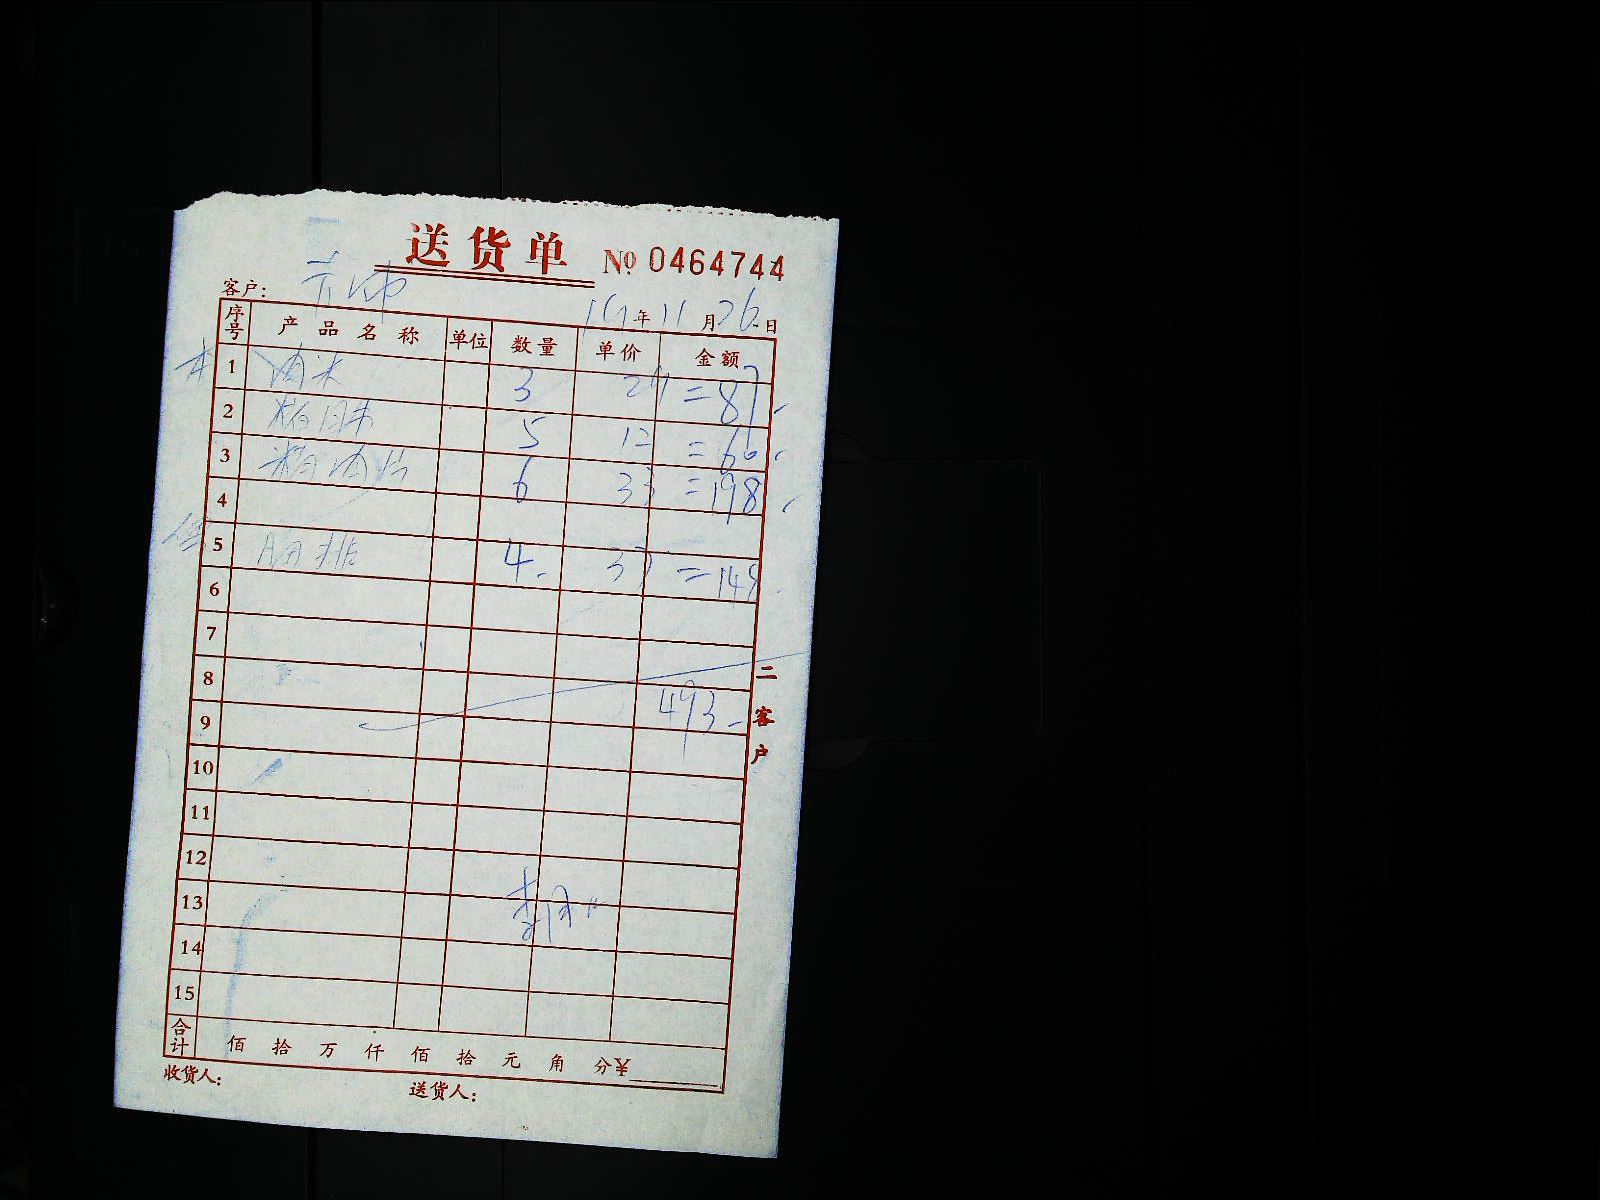 送货单 № 0464744
客户：
117年11月26日
序号 产品名称 单位 数量 单价 金额
1 油米 3 29 =87
2 5 12 =60
3 6 33 =198
4
5 排 4 37 =148
6
7
8 493
9
10
11
12
13
14
15
合计 佰 拾 万 仟 佰 拾 元 角 分¥
收货人： 送货人：
二客户